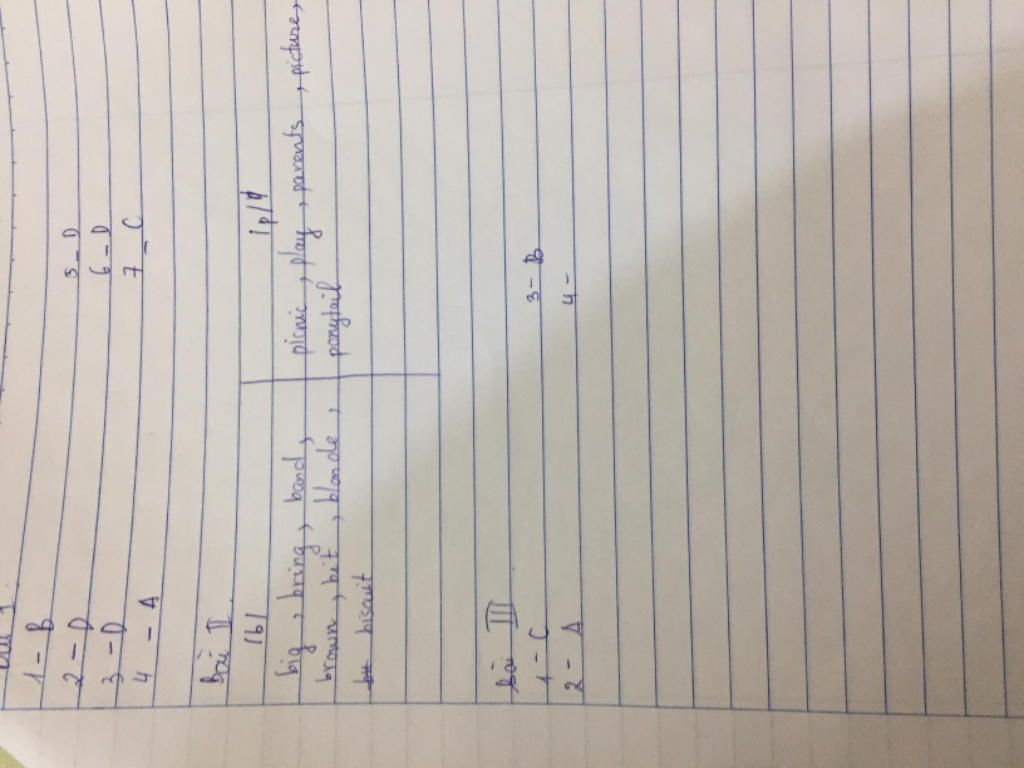 Bài 1.
1 - B
2 - D 5 - D
3 - D 6 - D
4 - A 7 - C
Bài II
/b/ /p/
big, bring, band, picnic, play, parents, picture,
brown, bit, blonde, ponytail
biscuit
Bài III
1 - C 3 - B
2 - A 4 -